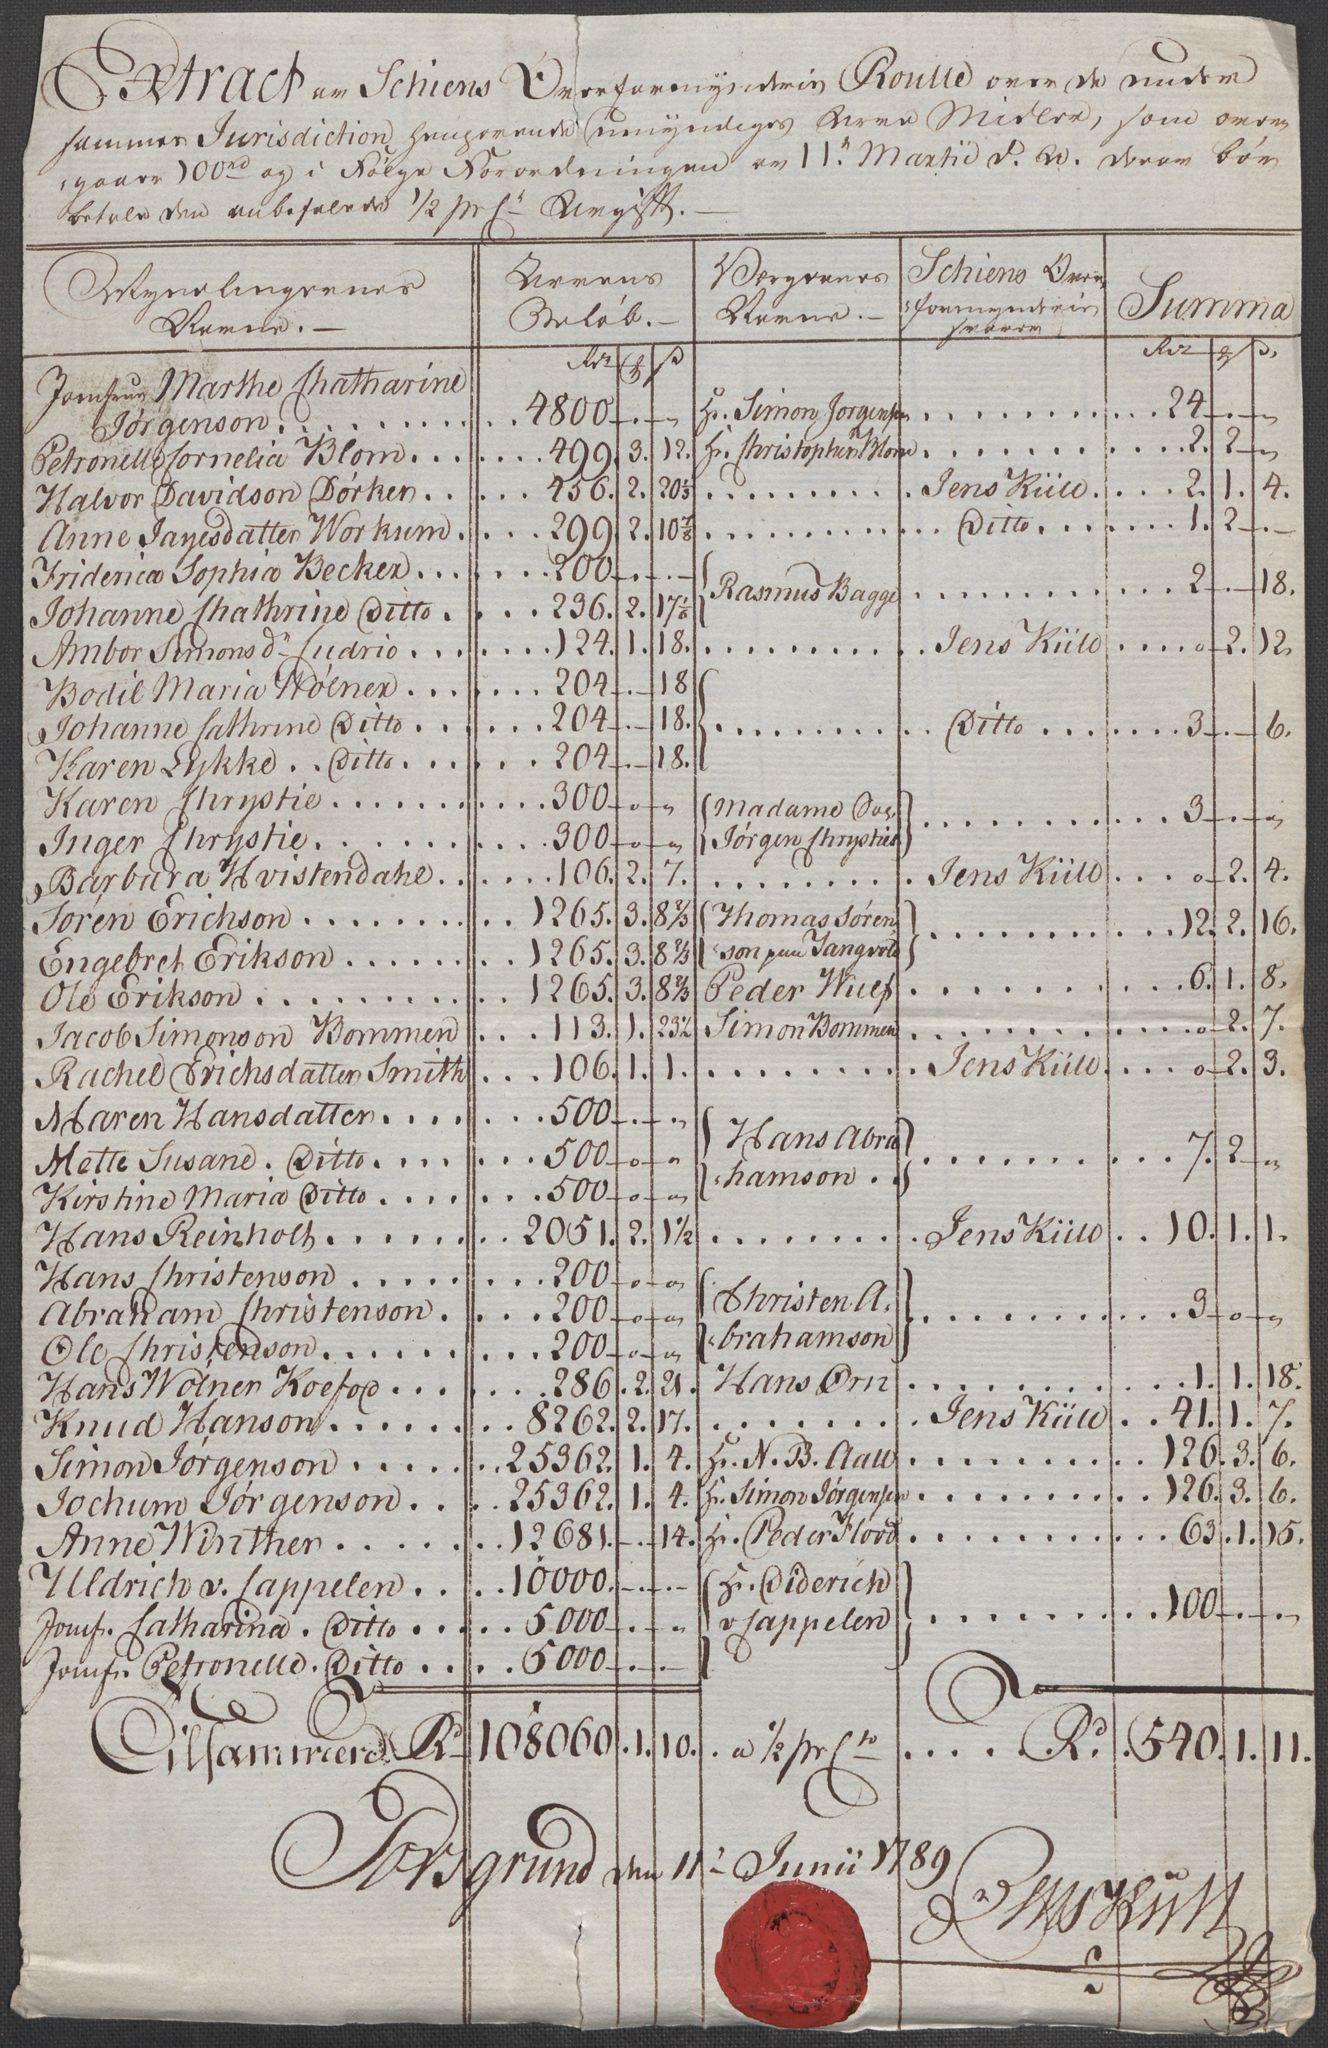 Extract av Schiens Overformynderie Roulle over de under
sammes Jurisdiction henhørende umyndiges Arve Midler, som over-
gaaer 100rd og i Følge Forordningen av 11te Martii d. A. derav bør
betale den anbefalede 1/2 pr Ct Avgift. —
Myndlingernes Navne. — | Arvens Beløb. — | Værgernes Navne. — | Schiens Over-formynderie svarer | Summa
Rdr ß | Rdr ß
Jomfrue Marthe Chatharine
Jørgenson . . . 4800 — . — „ Hr. Simon Jørgensen . . . 24 — . — „
Petronelle Cornelia Blom . . . 499. 3. 12. Hr. Christopher Blom . . . 2. 2 — „
Halvor Davidson Dörken . . . 456. 2. 20 1/3 . . . Jens Kiill . . . 2. 1. 4.
Anne Jayesdatter Workum . . . 299. 2. 10 7/8 . . . Ditto . . . 1. 2 — . —
Friderica Sophia Becker . . . 200 — . — . —
Johanne Chathrine Ditto . . . 236. 2. 17 1/2 { Rasmus Bagge . . . 2 — . — 18.
Ambor Simonsdr Ludrio . . . 124. 1. 18. . . . Jens Kiill . . . o — 2. 12.
Bodil Maria Wölner . . . 204 — . — 18
Johanne Cathrine Ditto . . . 204 — . — 18. { . . . Ditto . . . 3 — . — 6.
Karen Lykke . . Ditto . . . 204 — . — 18.
Karen Chrystie . . . 300 — o — „ { Madame Sal. } . . . 3 — . — „
Inger Chrystie . . . 300 — o — „ Jørgen Chrysties
Barbara Hvistendahl . . . 106. 2. 7. . . . Jens Kiill . . . o — 2. 4.
Sören Erichson . . . 1265. 3. 8 2/3 { Thomas Sören- } . . . 12. 2. 16.
Engebret Erikson . . . 1265. 3. 8 2/3 son paa Tangvald
Ole Erikson . . . 1265. 3. 8 2/3 Peder Wulf . . . 6. 1. 8.
Jacob Simonson Bommen . . . 113. 1. 23 1/2 Simon Bommen . . . o — 2. 7.
Rachel Erichsdatter Smith . . . 106. 1. 1. . . . Jens Kiill . . . o — 2. 3.
Maren Hansdatter . . . 500 — . — „
Mette Susane . Ditto . . . 500 — o — „ { Hans Abra- } . . . 7. 2 — „
Kirstine Maria Ditto . . . 500 — o — „ hamson . .
Hans Reinholt . . . 2051. 2. 1 1/2 . . . Jens Kiill . . 10. 1. 1.
Hans Christenson . . . 200 — o — „
Abraham Christenson . . . 200 — o — „ { Christen A- } . . . 3 — o — „
Ole Christenson . . . 200 — o — „ brahamson
Hans Wölner Koefod . . . 286. 2. 21. Hans Ørn . . . 1. 1. 18.
Knud Hanson . . . 8262. 2. 17. . . . Jens Kiill . . 41. 1. 7.
Simon Jørgenson . . . 25362. 1. 4. Hr. N. B. Aall . . . 126. 3. 6.
Jochum Jørgenson . . . 25362. 1. 4. Hr. Simon Jørgensen . . . 126. 3. 6.
Anne Winther . . . 12681. — . — 14. Hr. Peder Flood . . . 63. 1. 15.
Uldrich v. Cappelen . . . 10000. — . — . — { Hr. Diderich }
Jomf. Catharina . Ditto . . . 5000 — . — „ v Cappelen . . . 100 — . — . — „
Jomfr. Petronelle . Ditto . . . 5000 — . — . —
Tilsammen Rd 108060. 1. 10. . a 1/2 pr Cto . . . Rd. 540. 1. 11.
Porsgrund den 11te Junii 1789
Jens Kiill